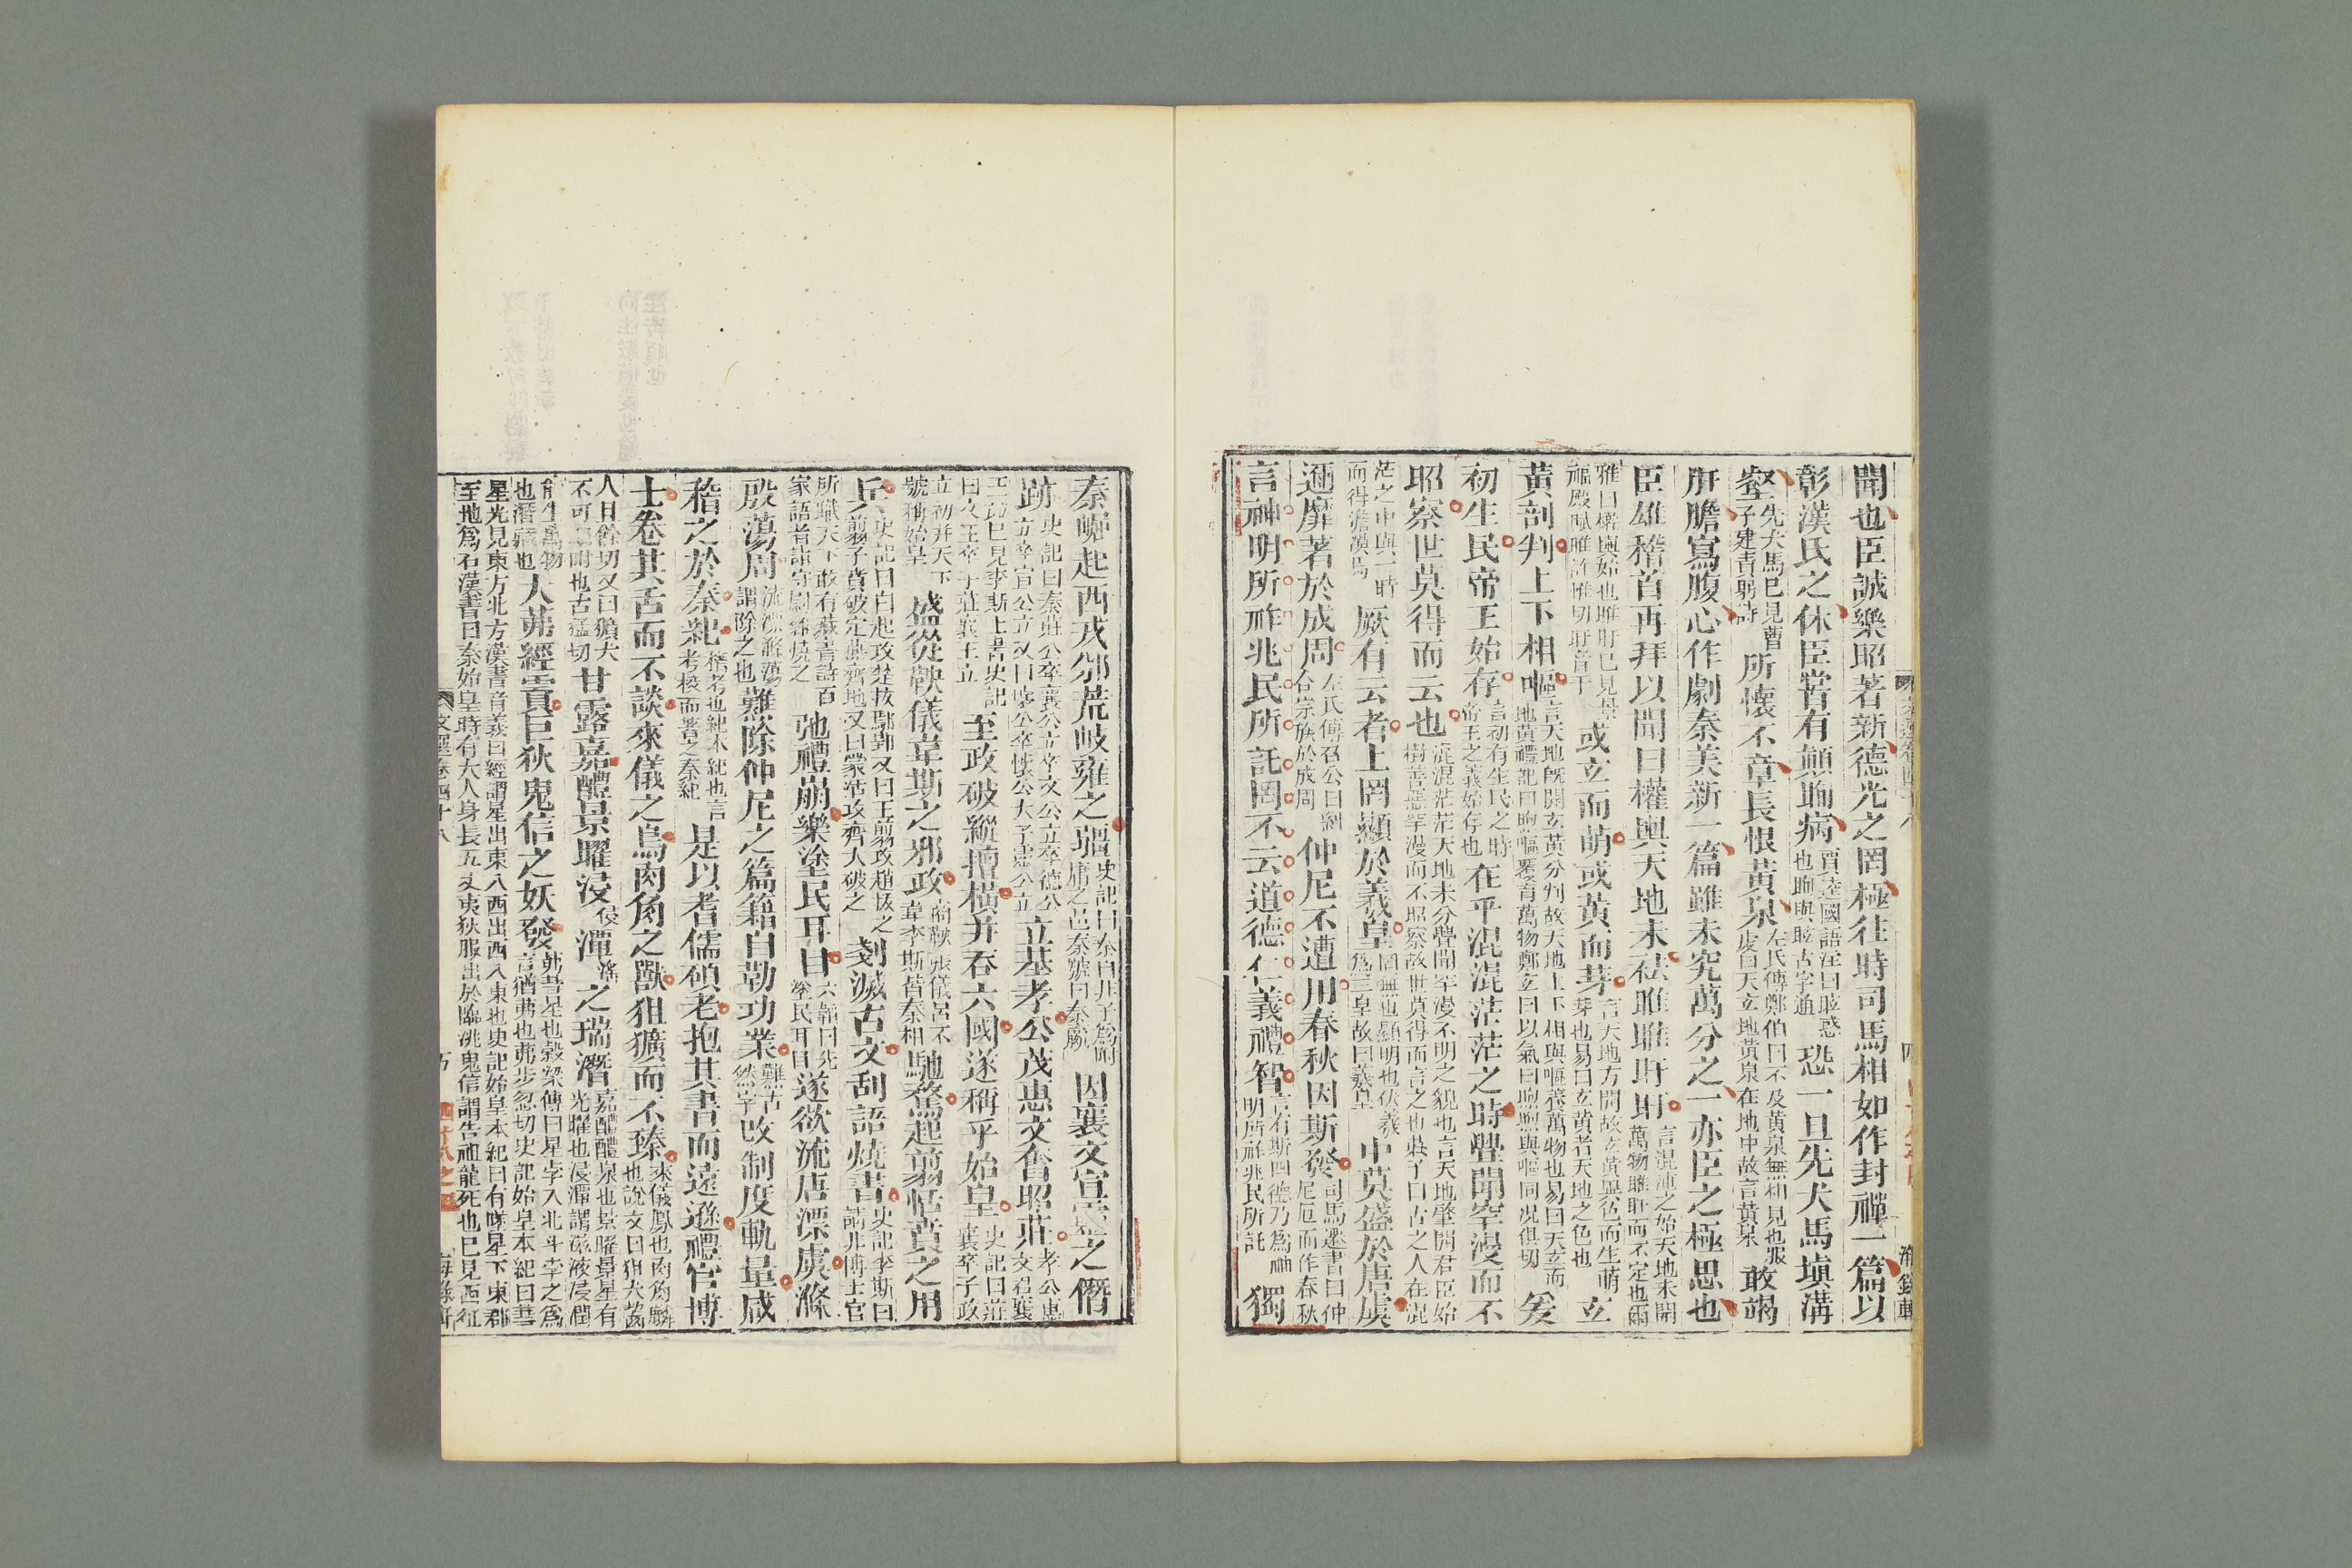 聞也臣誠樂昭著新德光之罔極往時司馬相如作封禪一篇以
彰漢氏之休臣嘗有顛眴病賈逵國語注曰眩惑也眴與眩古字通恐一旦先犬馬塡溝
壑先犬馬已見曹子建責躬詩所懷不章長恨黃泉左氏傳鄭伯曰不及黃泉無相見也服虔曰天玄地黃泉在地中故言黃泉敢竭
肝膽寫腹心作劇秦美新一篇雖未究萬分之一亦臣之極思也
臣雄稽首再拜以聞曰權輿天地未袪睢睢盱盱言混沌之始天地未開萬物睢盱而不定也爾
雅曰權輿始也睢盱已見景福殿賦睢許惟切盱音于或玄而萌或黃而芽言天地方開故玄黃異色而生萌芽也易曰玄黃者天地之色也玄
黃剖判上下相嘔言天地旣開玄黃分判故天地上下相與嘔養萬物也易曰天玄而地黃禮記曰煦嫗覆育萬物鄭玄曰以氣曰煦煦與嘔同況俱切爰
初生民帝王始存言初有生民之時帝王之義始存也在乎混混茫茫之時舋聞罕漫而不
昭察世莫得而云也混混茫茫天地未分舋聞罕漫不明之貌也言天地肇開君臣始樹善惡罕漫而不昭察故世莫得而言之也莊子曰古之人在混
茫之中與一時而得澹漠焉厥有云者上罔顯於羲皇罔無也顯明也伏羲爲三皇故曰羲皇中莫盛於唐虞
邇靡著於成周左氏傳召公曰糾合宗族於成周仲尼不遭用春秋因斯發司馬遷書曰仲尼厄而作春秋
言神明所祚兆民所託罔不云道德仁義禮智言有斯四德乃爲神明所祚兆民所託獨
秦崛起西戎邠荒岐雍之疆史記曰秦自非子爲附庸之邑秦號曰秦嬴因襄文宣靈之僭
跡史記曰秦莊公卒襄公立卒文公立卒德公立卒宣公立又曰懷公卒懷公太子靈公立立基孝公茂惠文奮昭莊孝公惠文君襄
王並已見李斯上書史記曰文王卒子莊襄王立至政破縱擅橫并吞六國遂稱乎始皇史記曰莊襄卒子政
立初并天下號稱始皇盛從鞅儀韋斯之邪政商鞅張儀呂不韋李斯皆秦相馳騖起翦恬賁之用
兵史記曰白起攻楚拔鄢郢又曰王翦攻趙拔之翦子賁破定燕齊地又曰蒙恬攻齊大破之剗滅古文刮語燒書史記李斯曰請非博士官
所職天下敢有藏言詩百家語者詣守尉雜燒之弛禮崩樂塗民耳目六韜曰先塗民耳目遂欲流唐漂虞滌
殷蕩周流漂滌蕩謂除之也難除仲尼之篇籍自勒功業難古然字改制度軌量咸
稽之於秦紀稽考也紀本紀也言考校而著之秦紀是以耆儒碩老抱其書而遠遜禮官博
士卷其舌而不談來儀之鳥肉角之獸狙獷而不臻來儀鳳也肉角麟也說文曰狙犬暫
人曰餘切又曰獷犬不可附也古猛切甘露嘉醴景曜浸侵潭滛之瑞潛嘉醴醴泉也景曜景星有光曜也浸潭謂滋液浸潤
能生萬物也潛藏也大茀經霣巨狄鬼信之妖發茀彗星也穀梁傳曰星孛入北斗孛之爲言猶茀也茀步忽切史記始皇本紀曰彗
星光見東方北方漢書音義曰經謂星出東入西出西入東也史記始皇本紀曰有墜星下東郡至地爲石漢書曰秦始皇時有大人身長五丈夷狄服出於臨洮鬼信謂告祖龍死也已見西征
文選卷四十八